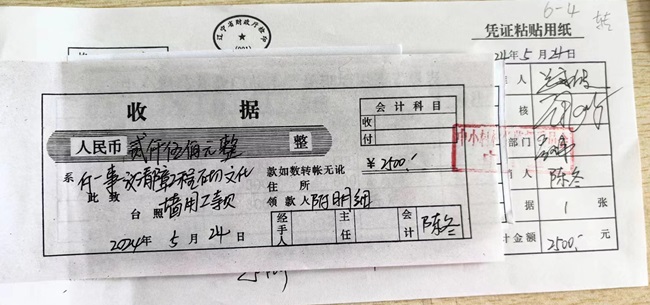 6-4
辽宁省财政厅
凭证粘贴用纸
2024年5月24日
收据
会计科目
收
付
人民币 贰仟伍佰元整 整
¥2500.-
系付一事议清障工程石砌文化
墙用工款
此致
台照
款如数转帐无讹
住所
领款人附明细
2024年5月24日
经手人
主任
会计 陈冬
人
核
部门
人 陈冬
据 1 张
计金额 2500.- 元